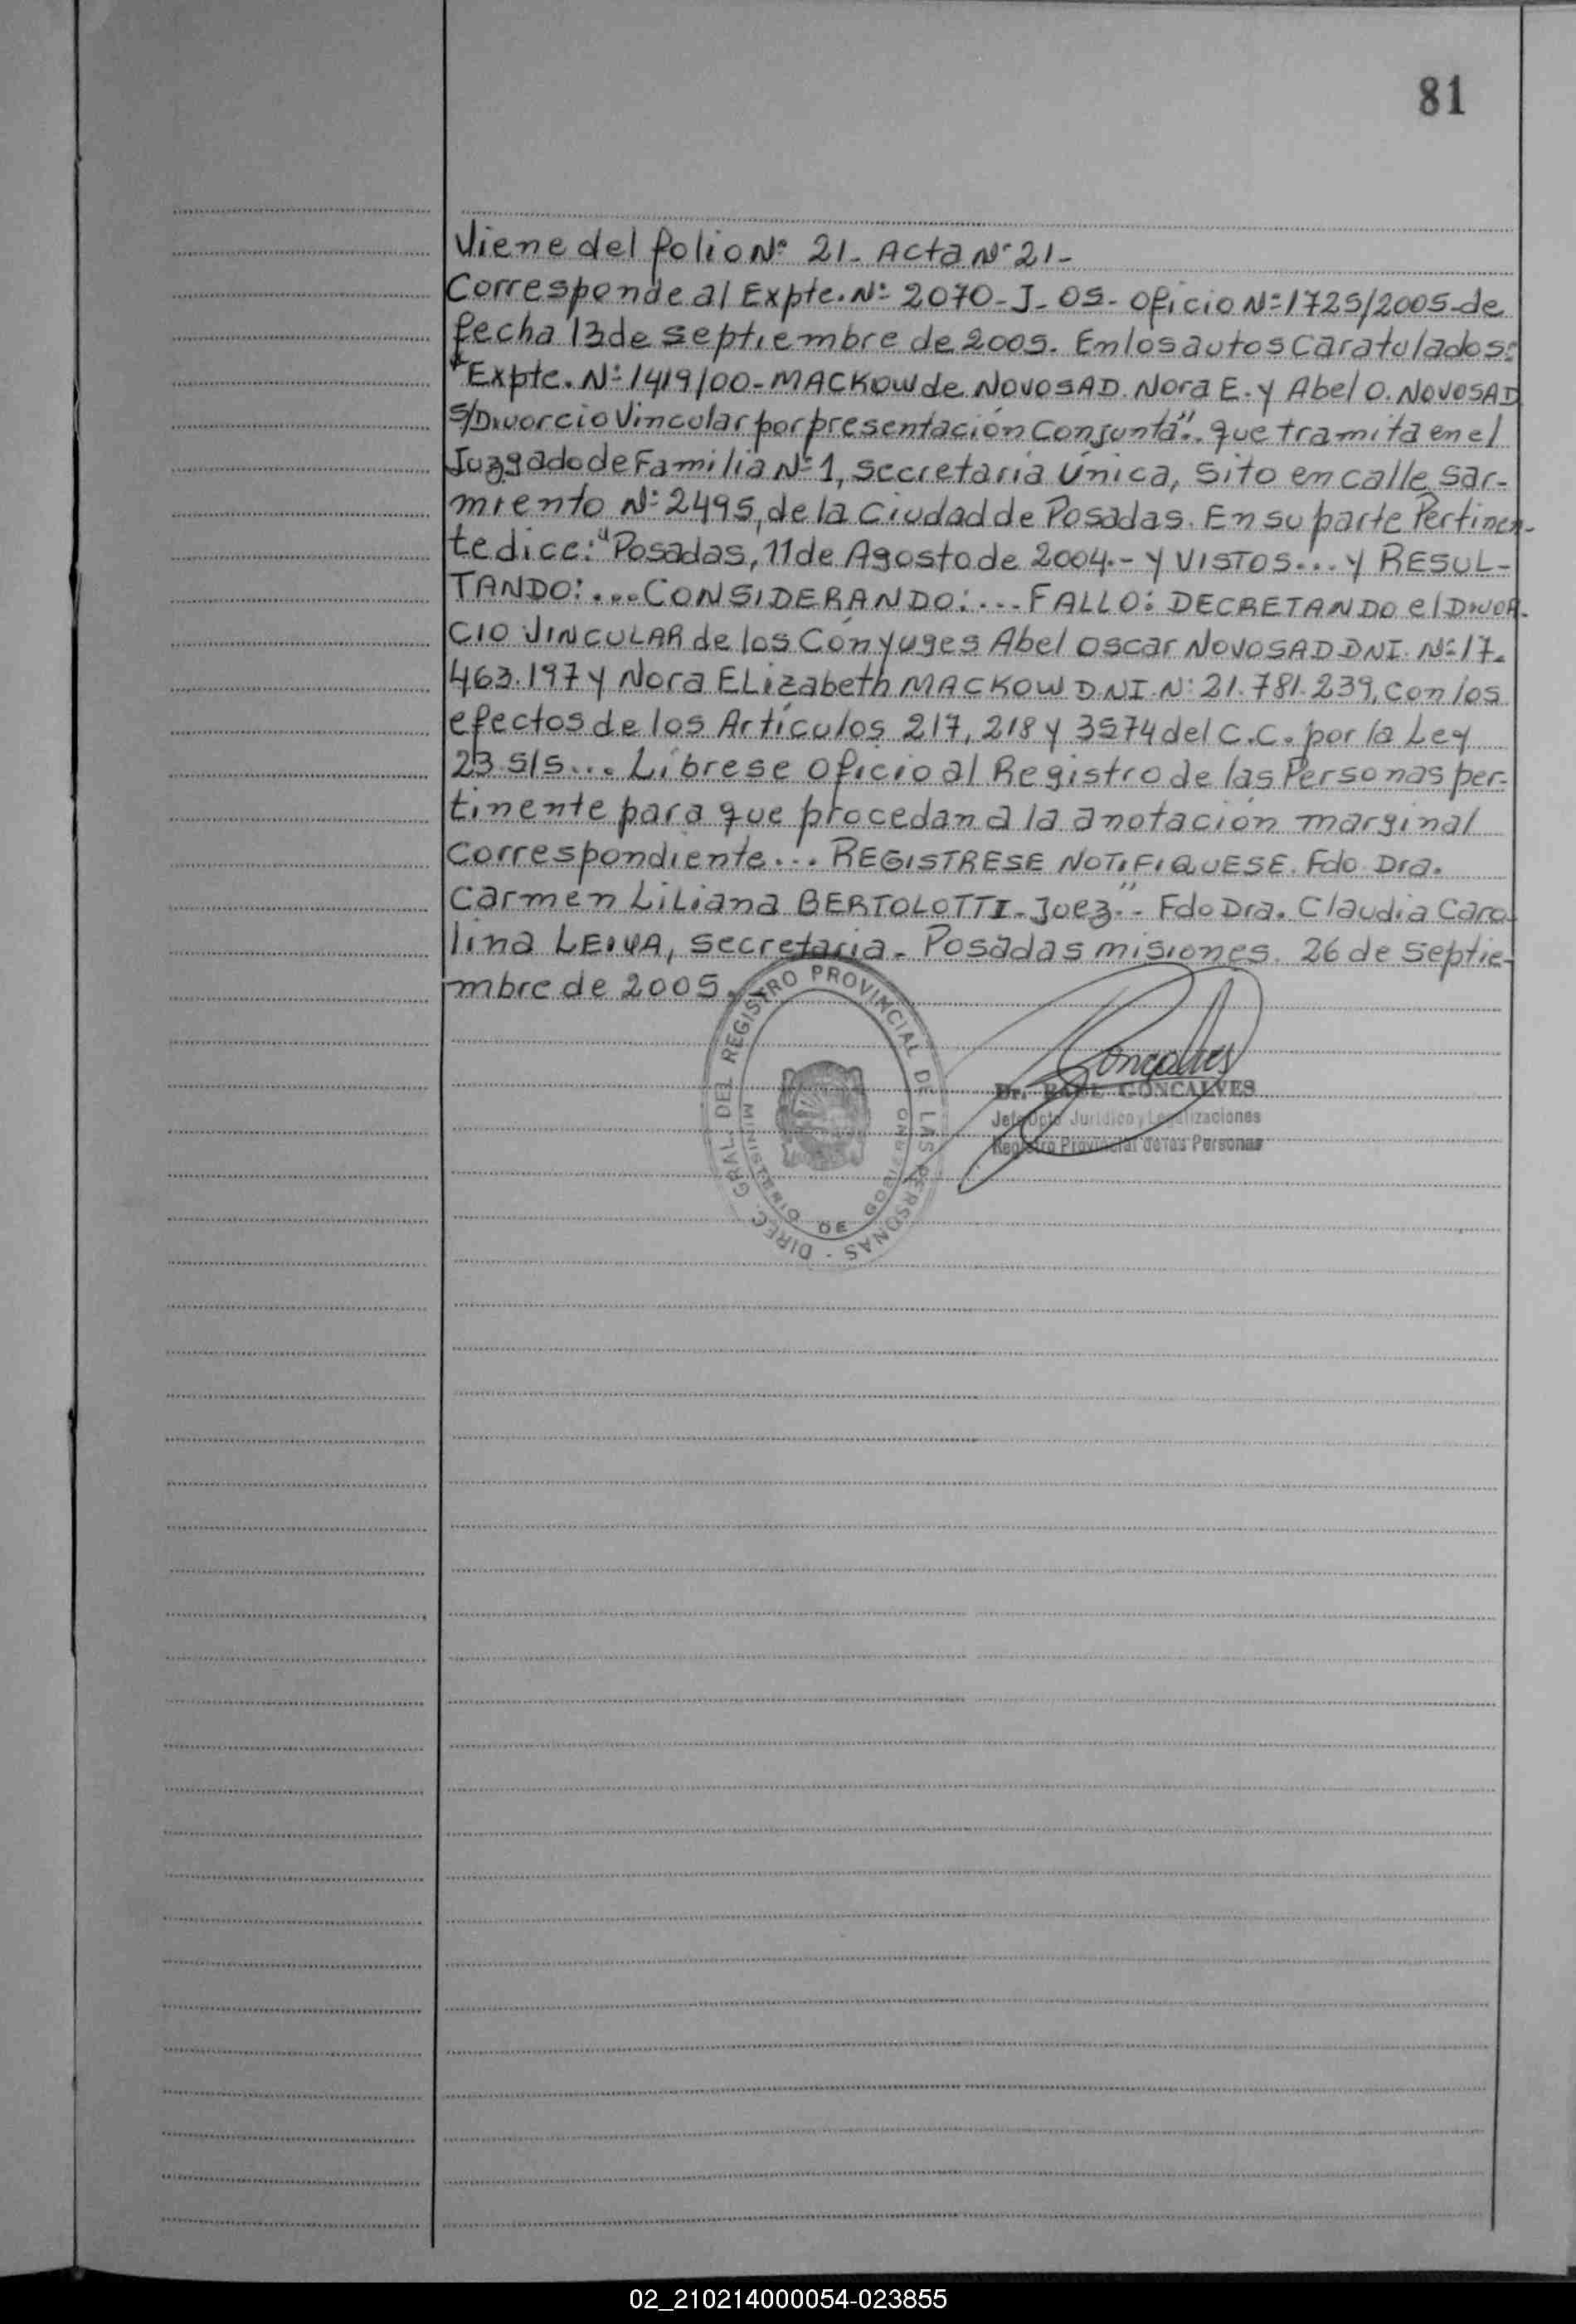 81
Viene del folio Nº 21- Acta Nº 21-
Corresponde al Expte. Nº 2070-J-05- Oficio Nº 1725/2005-de
fecha 13 de septiembre de 2005. En los autos caratulados:
"Expte. Nº 1419/00-MACKOW de NOVOSAD. Nora E. y Abel O. NOVOSAD
S/Divorcio Vincular por presentación Conjunta". que tramita en el
Juzgado de Familia Nº 1, secretaría Única, Sito en calle Sar-
miento Nº 2495, de la Ciudad de Posadas. En su parte Pertinen-
te dice: "Posadas, 11 de Agosto de 2004.- y VISTOS... y RESUL-
TANDO:...CONSIDERANDO:... FALLO: DECRETANDO el DIVOR-
CIO VINCULAR de los Cónyuges Abel Oscar NOVOSAD DNI. Nº 17.
463.197 y Nora ELizabeth MACKOW D.NI.Nº 21.781.239, con los
efectos de los Artículos 217, 218 y 3574 del C.C. por la Ley
23.515... Líbrese Oficio al Registro de las Personas per-
tinente para que procedan a la anotación marginal
Correspondiente... REGISTRESE NOTIFIQUESE. Fdo. Dra.
Carmen LiLiana BERTOLOTTI-Juez."- Fdo Dra. Claudia Caro-
lina LEIVA, secretaria- Posadas misiones. 26 de septie-
mbre de 2005.
DIREC. GRAL. DEL REGISTRO PROVINCIAL DE LAS PERSONAS -
MINISTERIO DE GOBIERNO
Goncalves
Dr. RAUL GONCALVES
Jefe Dpto Jurídico y Legalizaciones
Registro Provincial de las Personas
02_210214000054-023855